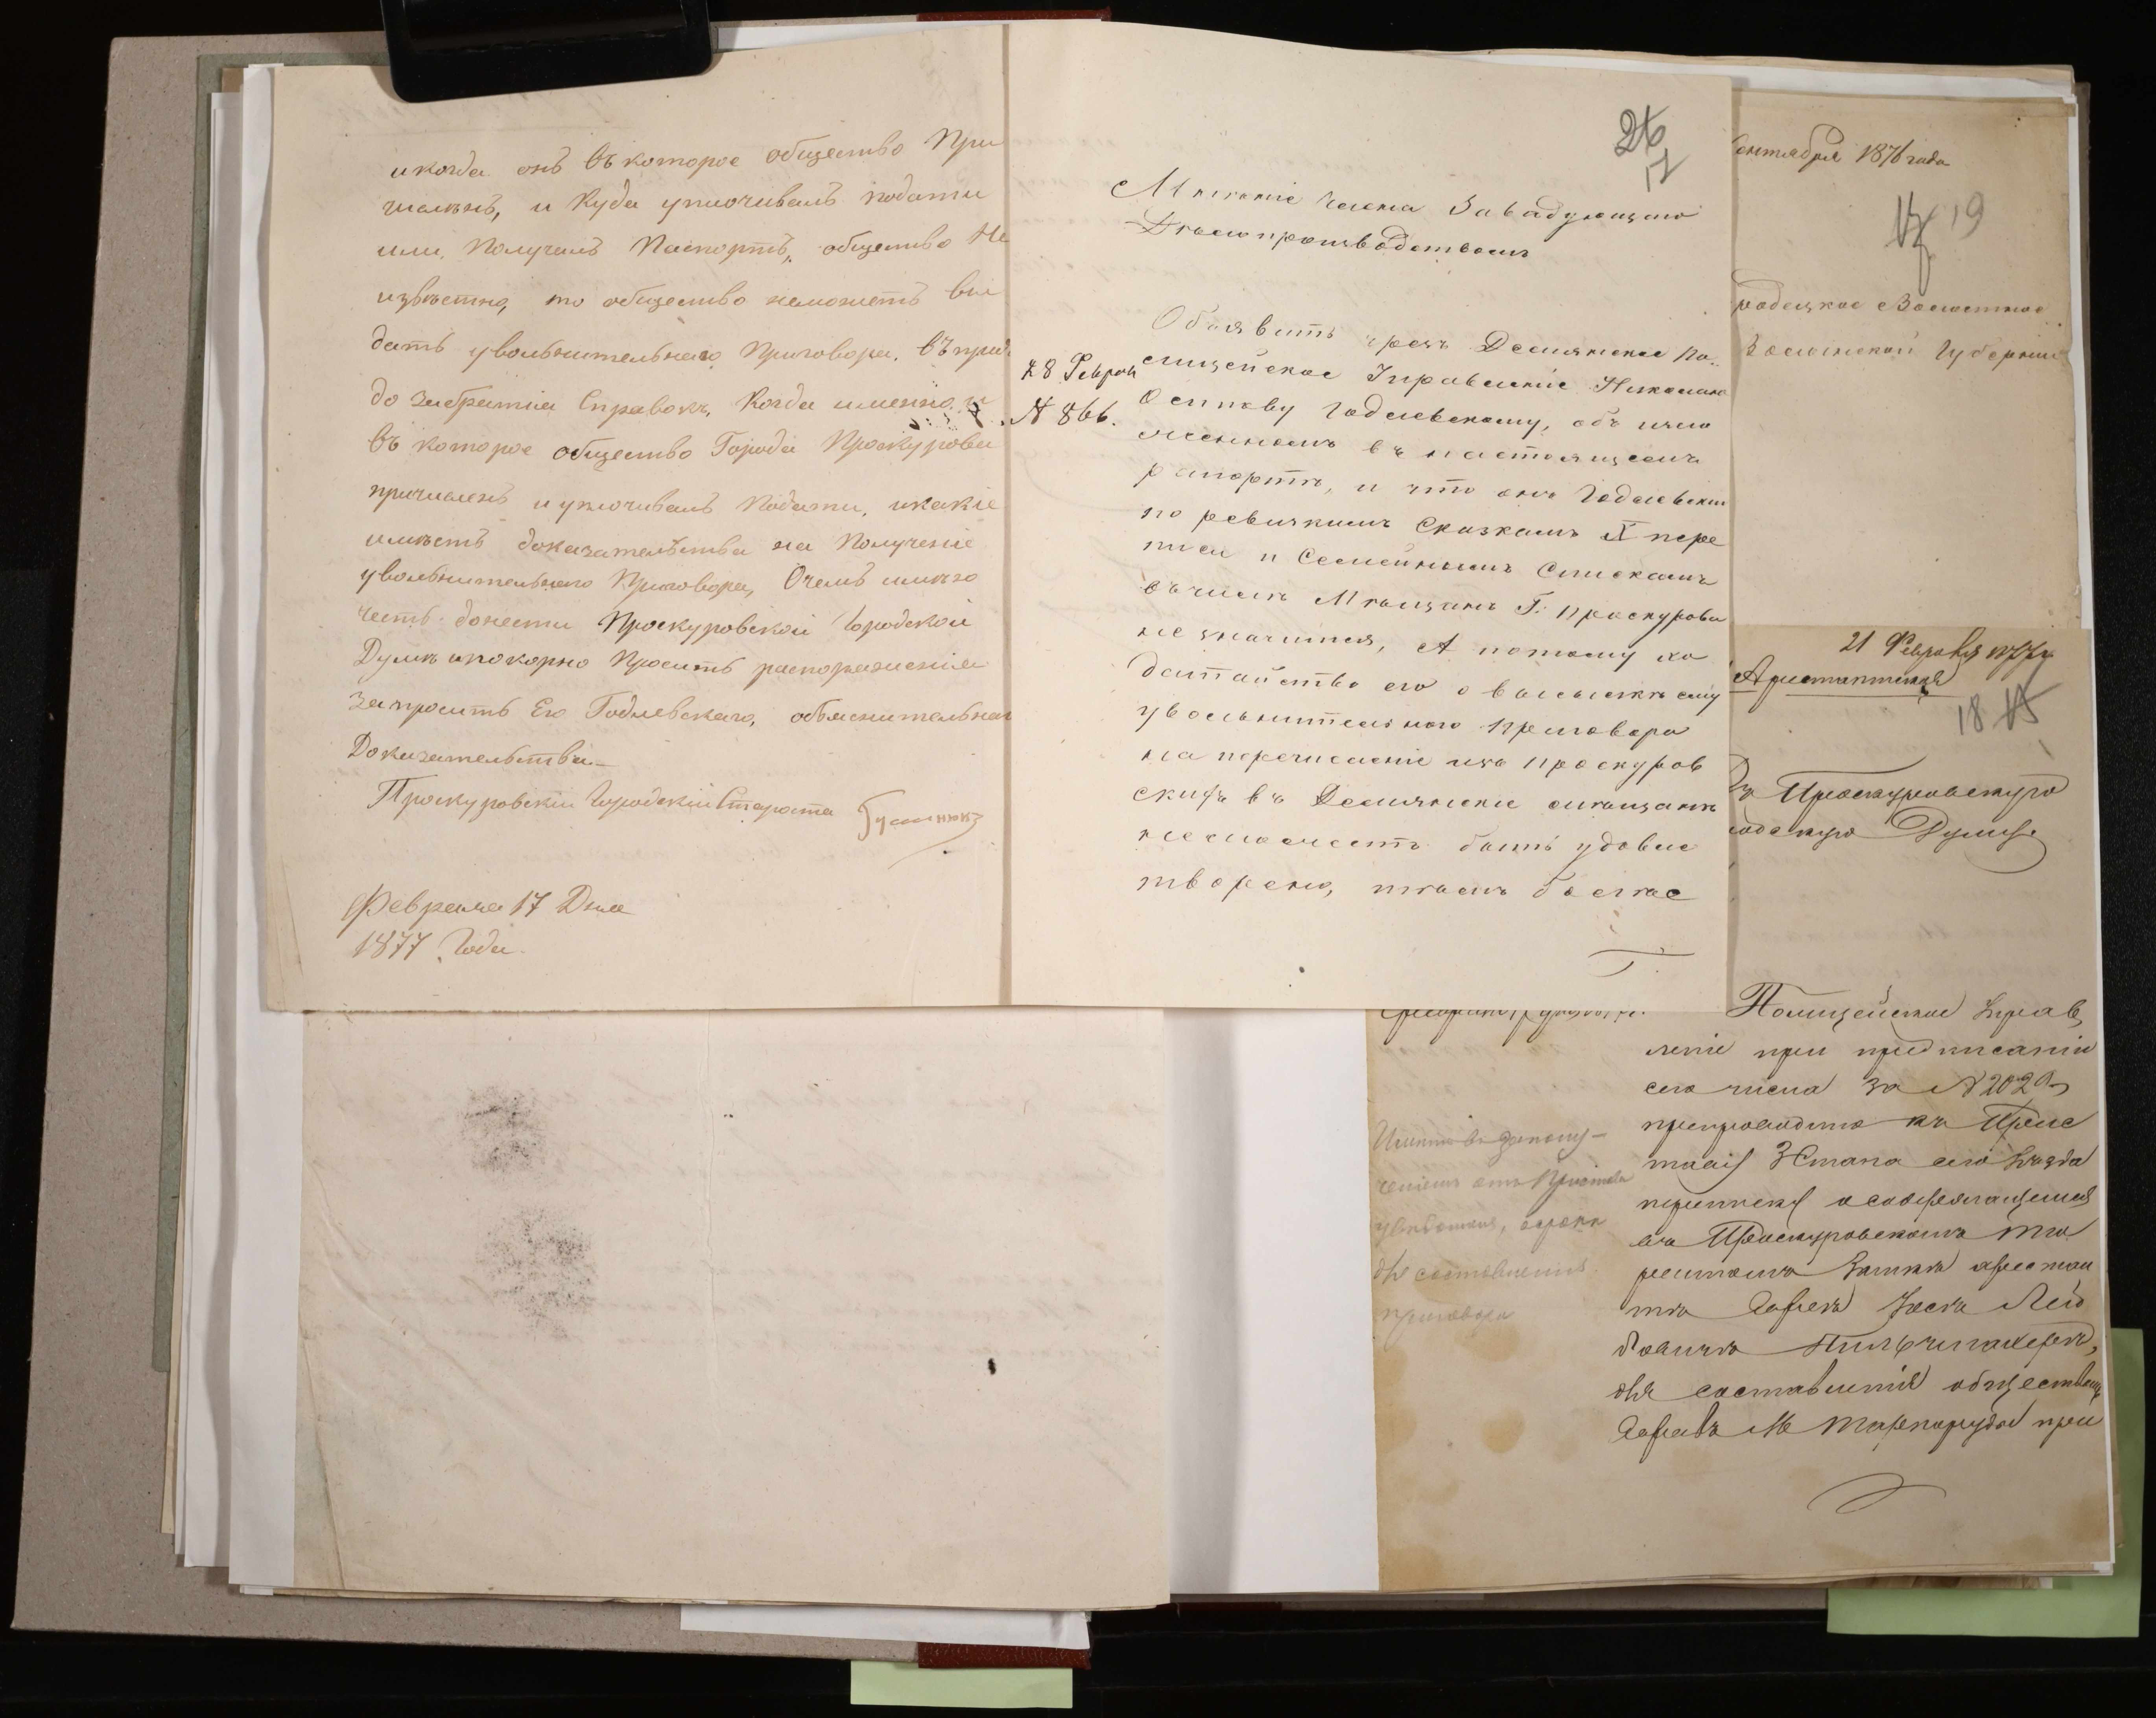 и когда онъ въ которое общество При
численъ, и куда уплочивалъ подати
или, Получалъ Паспортъ, общество Не
извѣстно, то общество неможетъ вы
дать увольнительнаго Приговора. въпредь
до забратія Справокъ, Когда именно и
въ которое общество Города Проскурова
причисленъ и уплочивалъ Подати, икакіе
имѣетъ доказательства на Полученіе
увольнительнаго Приговора, Очемъ имѣю
честь донести Проскуровской Городской
Думѣ ипокорно Просить распоряженія
Запросить Его Годлевскаго, объяснительныхъ
Доказательства.
Проскуровскій Городскій Староста
Февраля 17 Дня
1877 Года.
26
17
Мнѣніе Члена Завѣдующаго
Дѣлопроизводствомъ
28 Феврал
№ 866.
Объявить чрезъ Демянское По
лицейское Управленіе Николаю
Осипову Годлевскому, объ изло
женномъ въ настоящемъ
рапортѣ, и что онъ Годлевскій
по ревизкимъ Сказкамъ X пере
писи и Семейнымъ Спискамъ
въ числѣ Мѣщанъ Г. Проскурова
не значится, А потому хо
датайство его о высылкѣ ему
увольнительнаго Приговора
на перечисленіе изъ Проскуров
скихъ въ Демянскіе мѣщане
не можетъ быть удовле
творено, тѣмъ болѣе
Сентября 1876 года
17 19
родецкое Волостное
Волынской Губерніи
21 Февраля 1877 г.
Арестантская
18 15
Въ Проскуровскую
родскую Думу.
Полицейское Управ
леніе при предписаніи
сего числа за № 2029
препроводило къ Прис
таву 3 Стана сего Уѣзда
переписку о содержащемся
въ Проскуровскомъ тю
ремномъ Замкѣ арестан
тѣ Еврей
для составленія обществомъ
Евреевъ М. Тарноруды при
Имѣть въ
увѣдомленія, о
для составленія
приговора